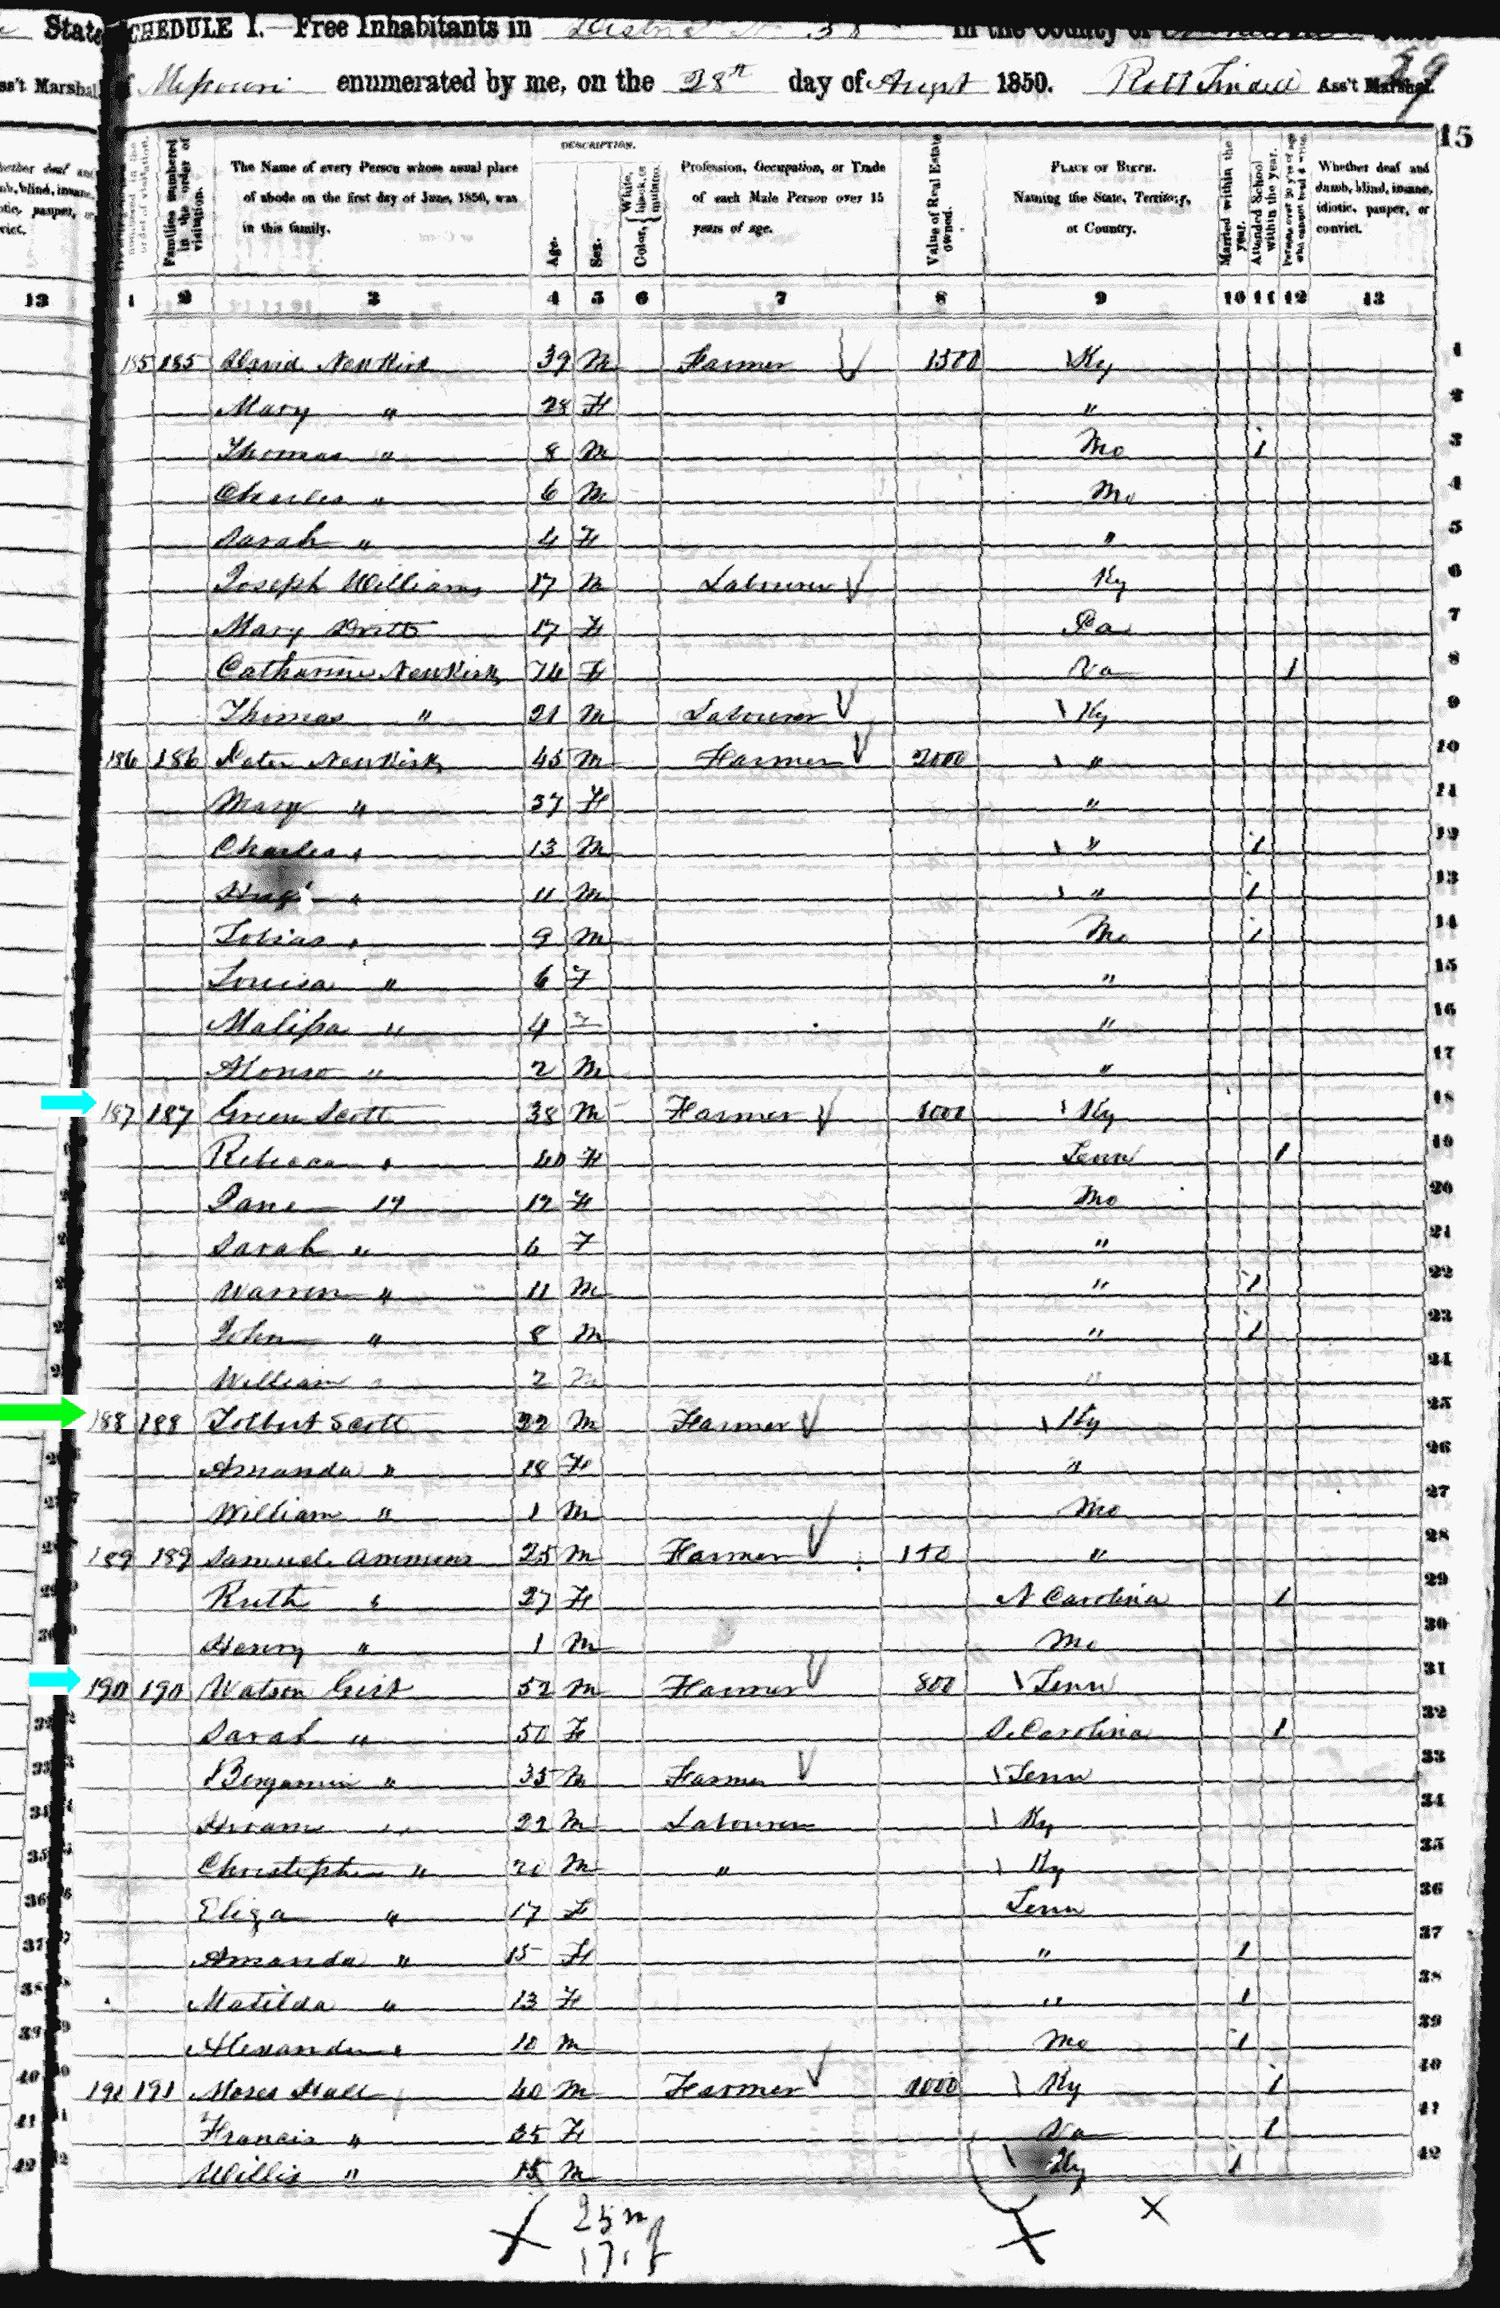 State SCHEDULE I.—Free Inhabitants in District No 38 in the County of State
ss't Marshal of Missouri enumerated by me, on the 28th day of August 1850. Robt Ass't Marshal.
59
15
Families numbered in the order of visitation.
The Name of every Person whose usual place of abode on the first day of June, 1850, was in this family.
DESCRIPTION.
Age.
Sex.
Color, { White, black, or mulatto.
Profession, Occupation, or Trade of each Male Person over 15 years of age.
Value of Real Estate owned.
PLACE OF BIRTH. Naming the State, Territory, or Country.
Married within the year.
Attended School within the year.
Persons over 20 y'rs of age who cannot read & write.
Whether deaf and dumb, blind, insane, idiotic, pauper, or convict.
13 1 2 3 4 5 6 7 8 9 10 11 12 13
185 185 David NewKirk 39 M Farmer 1500 Ky 1
Mary " 28 F " 2
Thomas " 8 M Mo 1 3
Charles " 6 M Mo 4
Sarah " 4 F " 5
Joseph Williams 17 M Labourer Ky 6
Mary 17 F Pa 7
Catharine NewKirk 74 F Va 1 8
Thomas " 21 M Labourer Ky 9
186 186 Peter NewKirk 45 M Farmer 2000 " 10
Mary " 37 F " 11
Charles " 13 M " 1 12
" 11 M " 1 13
Tobias " 9 M Mo 1 14
Louisa " 6 F " 15
Malissa " 4 F " 16
Alonso " 2 M " 17
187 187 Green Scott 38 M Farmer 1000 Ky 18
Rebecca " 40 F Tenn 1 19
Jane 17 17 F Mo 20
Sarah " 6 F " 21
Warren " 11 M " 1 22
John " 8 M " 1 23
William " 2 M " 24
188 188 Tolbert Scott 22 M Farmer Ky 25
Amanda " 18 F " 26
William " 1 M Mo 27
189 189 Samuel Ammons 25 M Farmer 150 " 28
Ruth " 27 F N Carolina 1 29
Henry " 1 M Mo 30
190 190 Watson Gist 52 M Farmer 800 Tenn 31
Sarah " 50 F S. Carolina 1 32
Benjamin " 35 M Farmer Tenn 33
Hiram " 22 M Labourer Ky 34
Christopher " 20 M " Ky 35
Eliza " 17 F Tenn 36
Amanda " 15 F " 1 37
Matilda " 13 F " 1 38
Alexander " 10 M Mo 1 39
191 191 Moses Hall 40 M Farmer 1000 Ky 1 40
Francis " 35 F Va 1 41
Willis " 15 M Ky 1 42
25 m
17 f